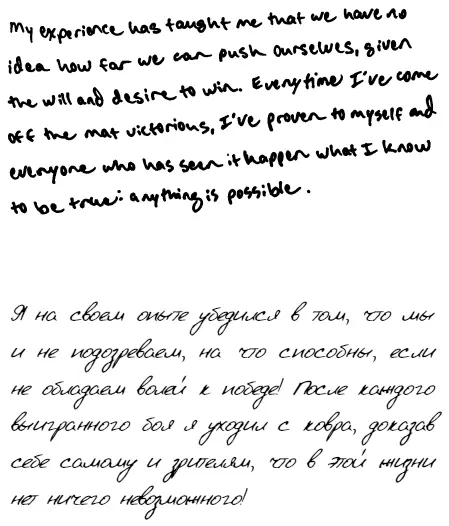 My experience has taught me that we have no
idea how far we can push ourselves, given
the will and desire to win. Everytime I've come
off the mat victorious, I've proven to myself and
everyone who has seen it happen what I know
to be true: anything is possible.
Я на своем опыте убедился в том, что мы
и не подозреваем, на что способны, если
не обладаем волей к победе! После каждого
выигранного боя я уходил с ковра, доказав
себе самому и зрителям, что в этой жизни
нет ничего невозможного!